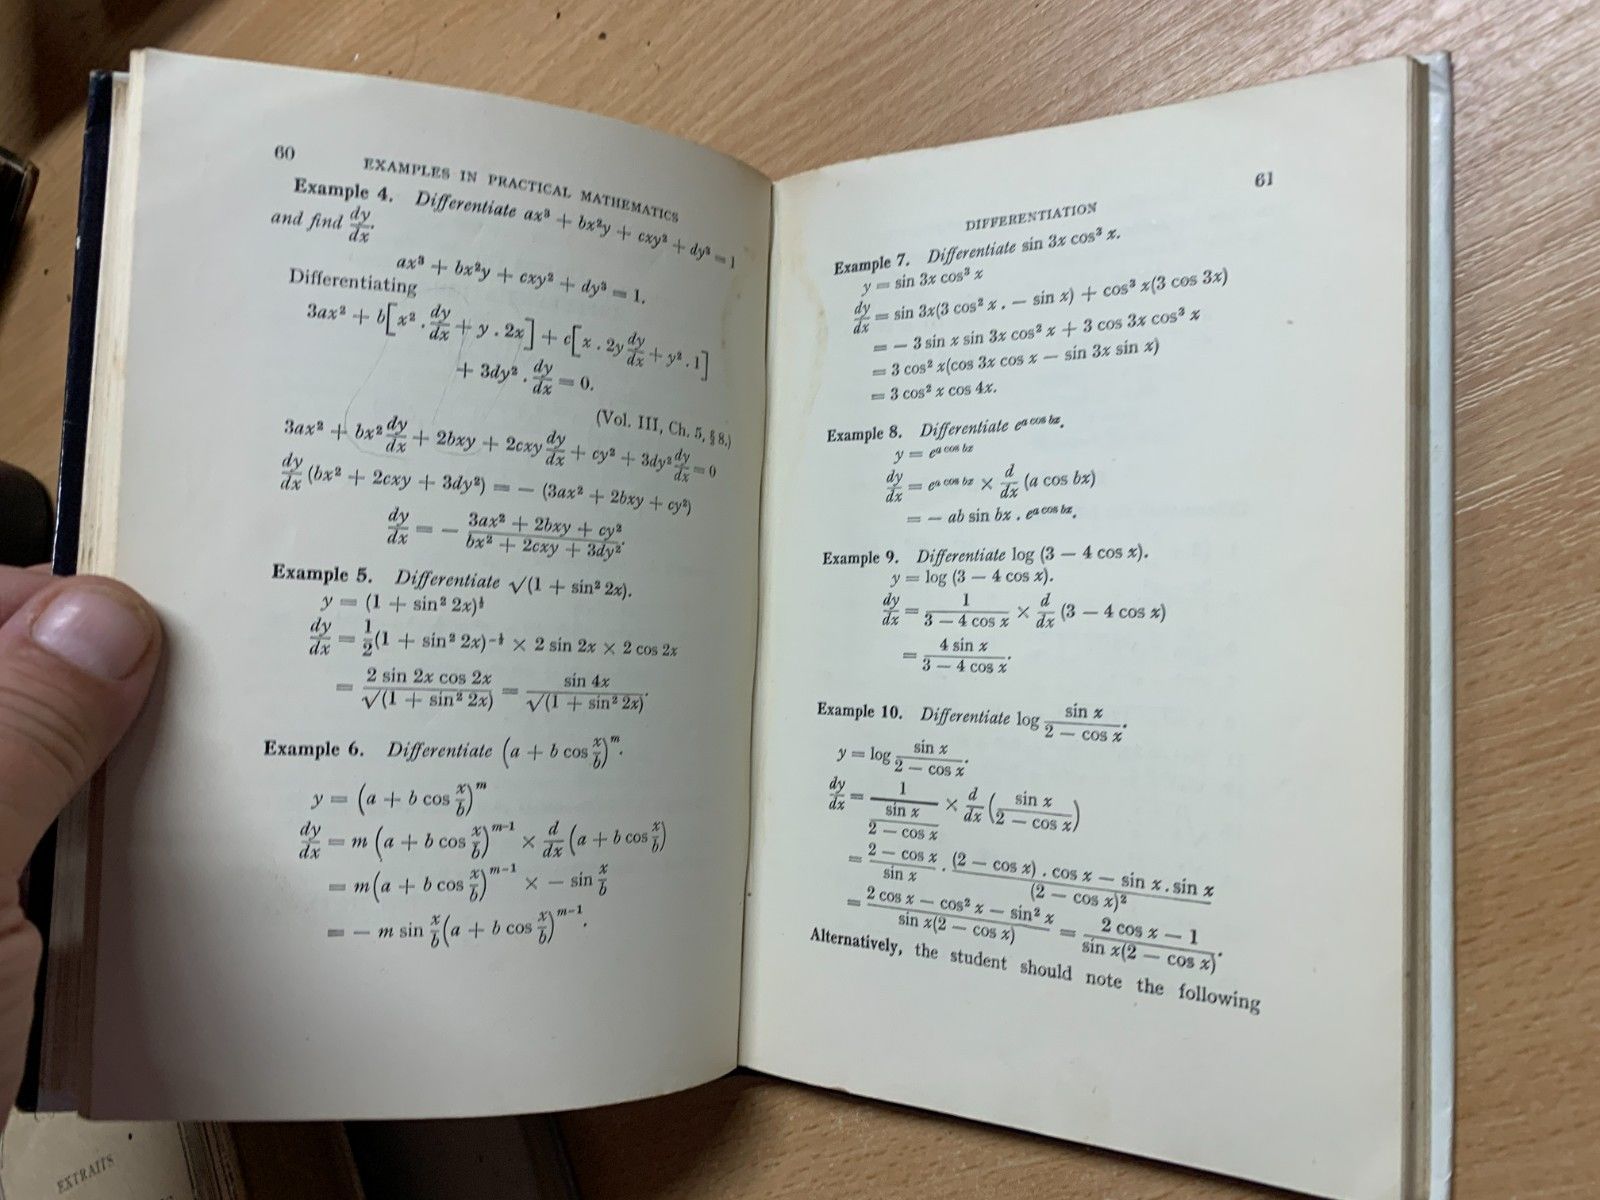 60
EXAMPLES IN PRACTICAL MATHEMATICS
Example 4. Differentiate ax³ + bx²y + cxy² + dy³ = 1
and find dy/dx.
ax³ + bx²y + cxy² + dy³ = 1.
Differentiating
3ax² + b[x² . dy/dx + y . 2x] + c[x . 2y dy/dx + y² . 1]
+ 3dy² . dy/dx = 0.
(Vol. III, Ch. 5, § 8.)
3ax² + bx² dy/dx + 2bxy + 2cxy dy/dx + cy² + 3dy² dy/dx = 0
dy/dx (bx² + 2cxy + 3dy²) = − (3ax² + 2bxy + cy²)
dy/dx = − (3ax² + 2bxy + cy²)/(bx² + 2cxy + 3dy²).
Example 5. Differentiate √(1 + sin² 2x).
y = (1 + sin² 2x)^½
dy/dx = 1/2 (1 + sin² 2x)^−½ × 2 sin 2x × 2 cos 2x
= 2 sin 2x cos 2x/√(1 + sin² 2x) = sin 4x/√(1 + sin² 2x).
Example 6. Differentiate (a + b cos x/b)^m.
y = (a + b cos x/b)^m
dy/dx = m (a + b cos x/b)^(m−1) × d/dx (a + b cos x/b)
= m(a + b cos x/b)^(m−1) × − sin x/b
= − m sin x/b (a + b cos x/b)^(m−1).
61
DIFFERENTIATION
Example 7. Differentiate sin 3x cos³ x.
y = sin 3x cos³ x
dy/dx = sin 3x(3 cos² x . − sin x) + cos³ x(3 cos 3x)
= − 3 sin x sin 3x cos² x + 3 cos 3x cos³ x
= 3 cos² x(cos 3x cos x − sin 3x sin x)
= 3 cos² x cos 4x.
Example 8. Differentiate e^(a cos bx).
y = e^(a cos bx)
dy/dx = e^(a cos bx) × d/dx (a cos bx)
= − ab sin bx . e^(a cos bx).
Example 9. Differentiate log (3 − 4 cos x).
y = log (3 − 4 cos x).
dy/dx = 1/(3 − 4 cos x) × d/dx (3 − 4 cos x)
= 4 sin x/(3 − 4 cos x).
Example 10. Differentiate log sin x/(2 − cos x).
y = log sin x/(2 − cos x).
dy/dx = 1/(sin x/(2 − cos x)) × d/dx (sin x/(2 − cos x))
= (2 − cos x)/sin x . ((2 − cos x) . cos x − sin x . sin x)/(2 − cos x)²
= (2 cos x − cos² x − sin² x)/(sin x(2 − cos x)) = (2 cos x − 1)/(sin x(2 − cos x)).
Alternatively, the student should note the following
EXTRAITS